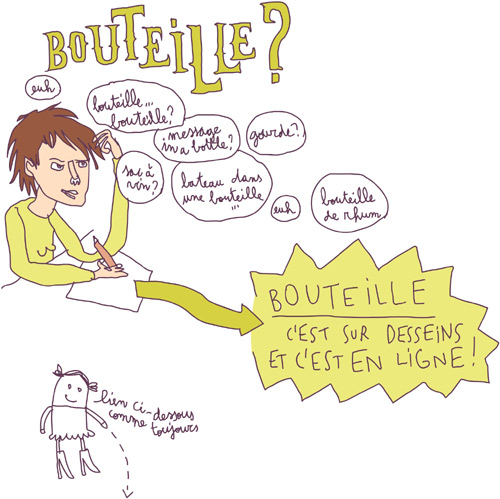 BOUTEILLE?
euh
bouteille...
bouteille?
message
in a bottle?
gourde?
sac à
vin?
bateau dans
une bouteille
...
euh
bouteille
de rhum
BOUTEILLE
C'EST SUR DESSEINS
ET C'EST EN LIGNE!
lien ci-dessous
comme toujours